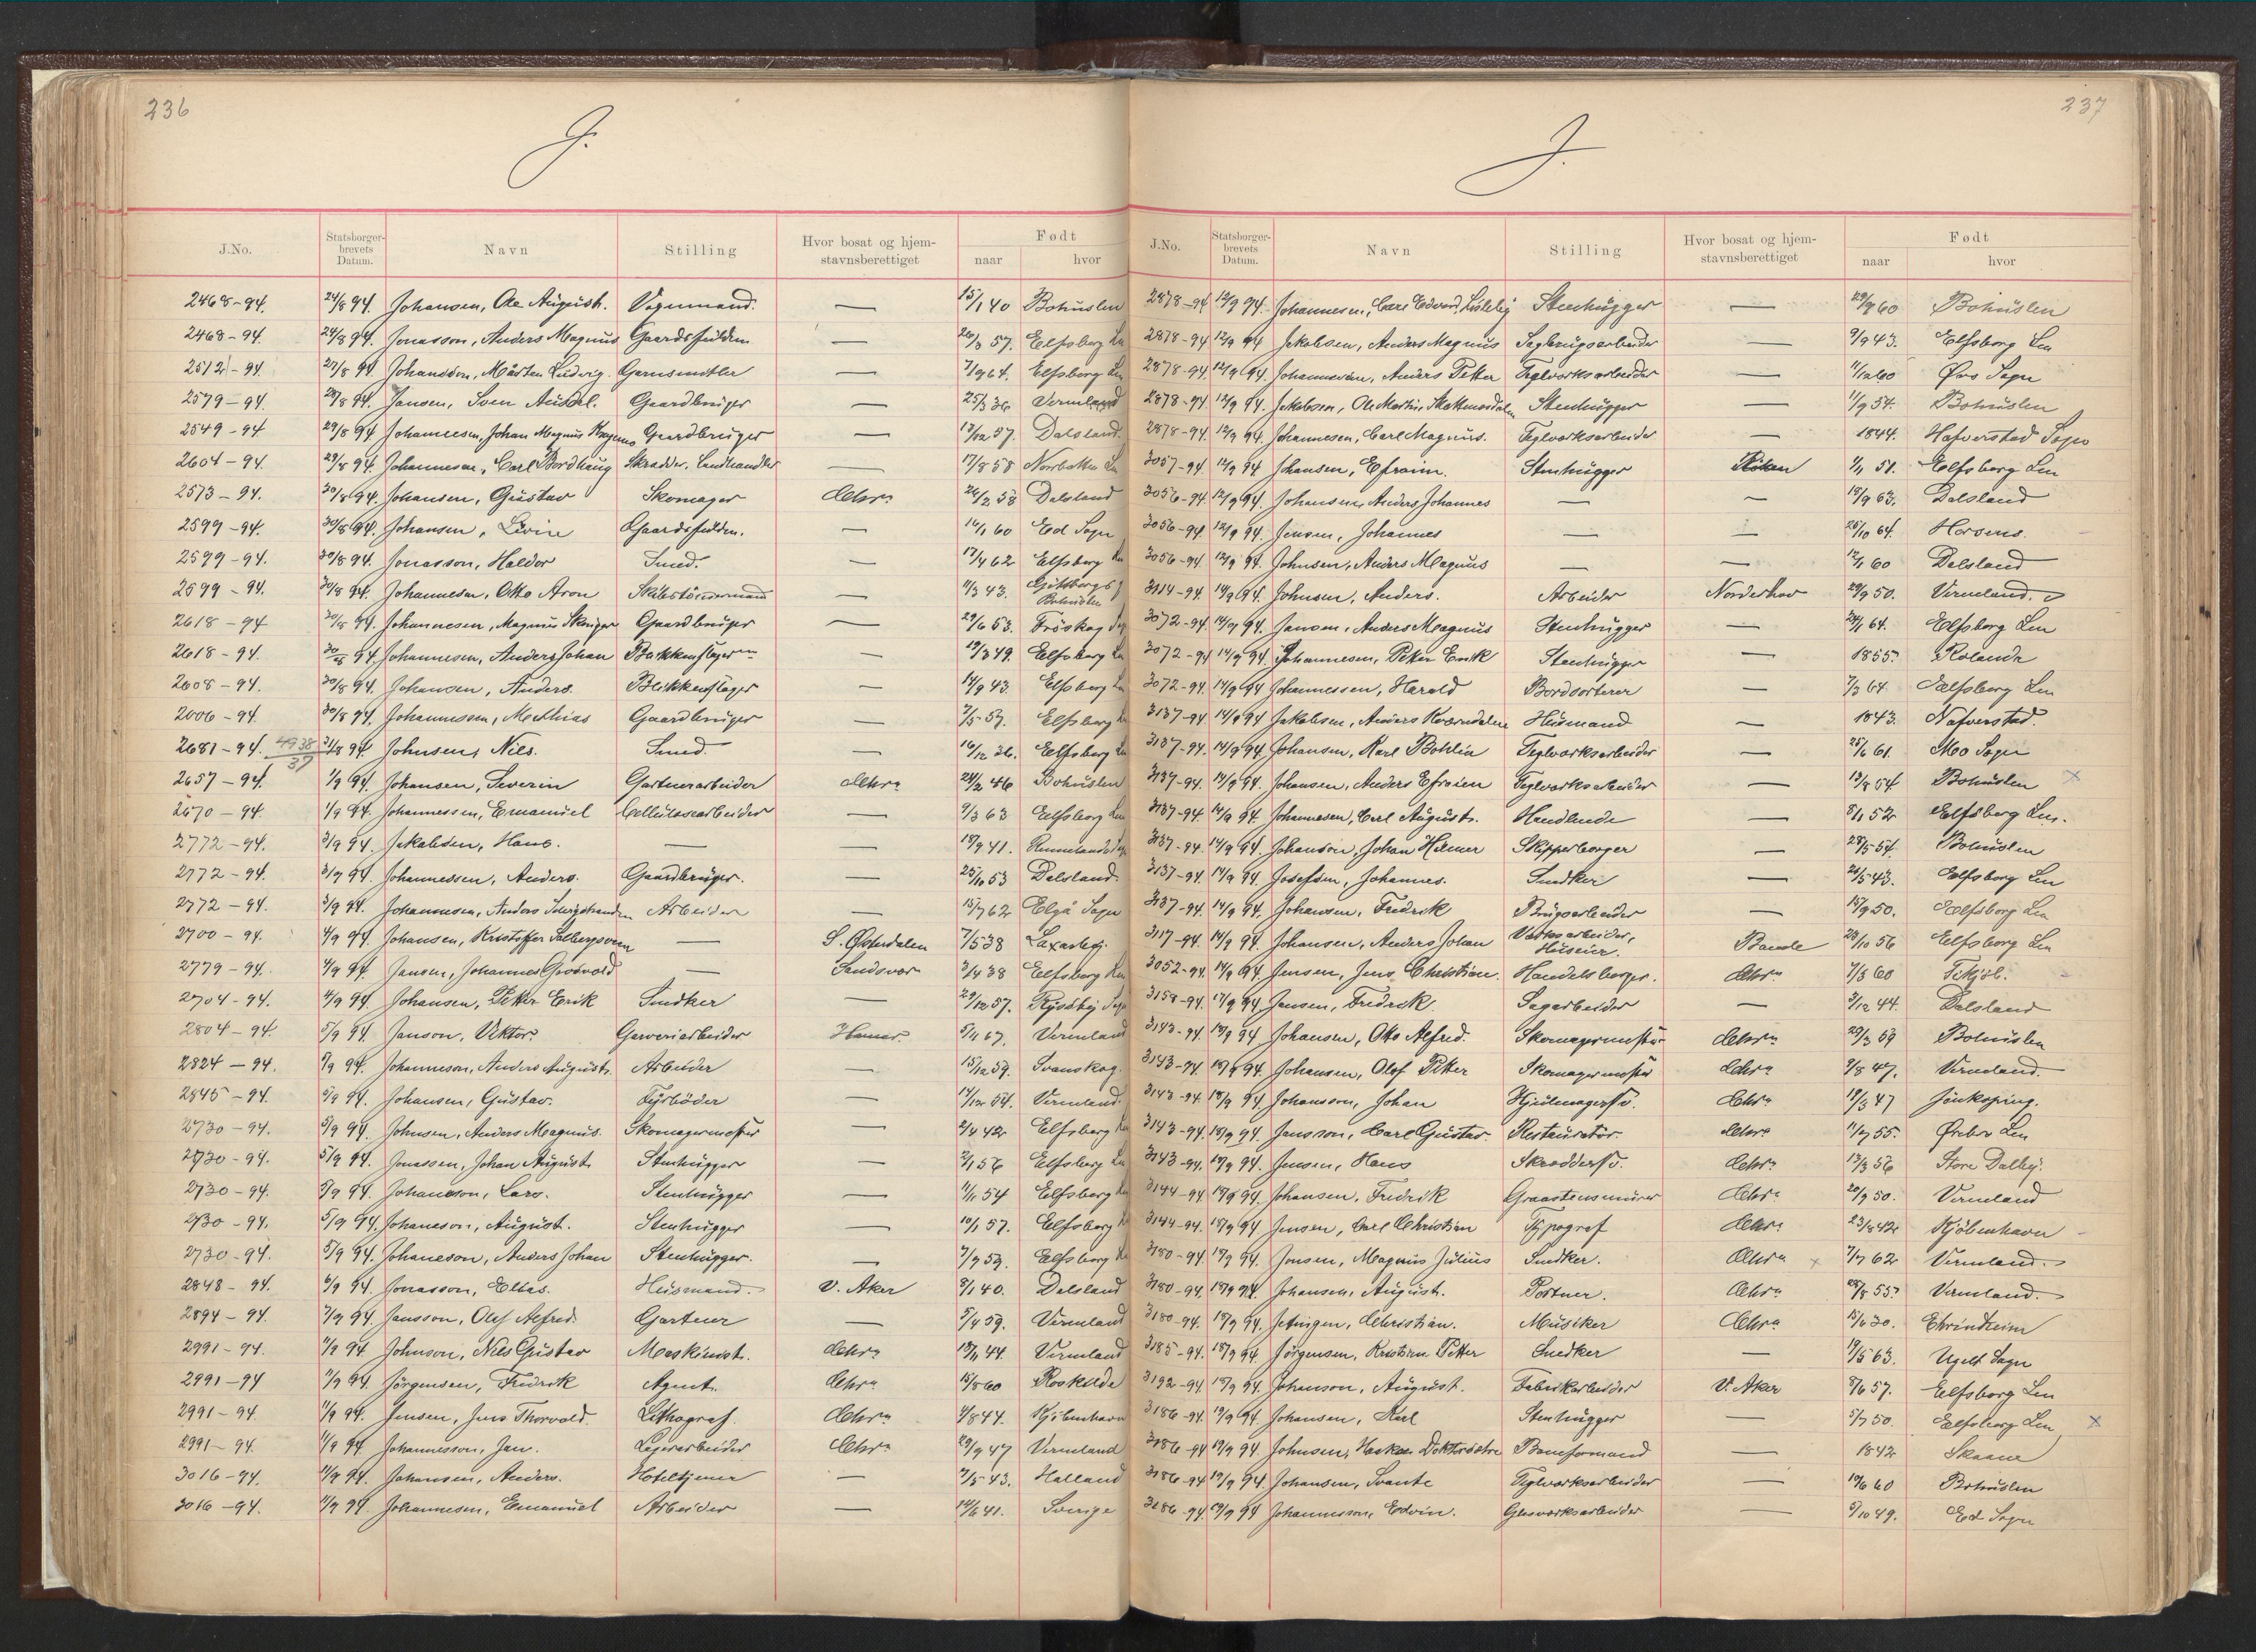 236
J.
J.No.
Statsborger-brevets Datum.
Navn
Stilling
Hvor bosat og hjem-stavnsberettiget
Født
naar
hvor
2468-94. 24/8 94. Johansen, Ole August. Vognmand. — 15/1 40 Bohuslen
2468-94. 24/8 94. Jonasson, Anders Magnus Gaardsfuldm — 57. Elfsborg Ln
2512-94. 27/8 94. Johansson, Mårten Ludvig. — 64. Elfsborg Ln
2579-94. 28/8 94. Jansen, Sven Gaardbruger — 25/3 36 Vermland
2549-94 29/8 94 Johannesen, Johan Magnus Gaardbruger — 13/12 57. Dalsland.
2604-94. 29/8 94. Johannesen, Carl Bordhaug Skrædder, Landhandler — 17/8 58
2573-94. 30/8 94. Johansen, Gustav Skomager Chra 26/2 58 Dalsland
2599-94. 30/8 94. Johansen, Gaardsfuldm. — 14/1 60 Ed Sogn
2599-94. 30/8 94. Jonasson, Haldor Smed. — 17/4 62 Elfsborg Ln
2599-94. 30/8 94. Johannesen, Otto Aron Skibstømmermand — 11/3 43. Bohuslen
2618-94 30/8 94. Johannesen, Magnus Gaardbruger — 29/6 53.
2618-94. 30/8 94 Johannesen, Anders Johan — 19/3 49. Elfsborg Ln
2608-94. 30/8 94. Johansen, Anders. Blikkenslager — 14/9 43. Elfsborg Ln
2606-94. 30/8 94. Johannesen, Mathias Gaardbruger — 57. Elfsborg Ln
2681-94. 4938/37 31/8 94 Johnsen, Nils. Smed. — 16/12 36. Elfsborg Ln
2657-94. 1/9 94. Johansen, Severin Gartnerarbeider Chra 24/2 46 Bohuslen
2670-94. 1/9 94. Johannessen, Emanuel Cellulosearbeider — 9/3 63 Elfsborg Ln
2772-94. 3/9 94. Jakobsen, Hans. — — 18/9 41.
2772-94. 3/9 94. Johannessen, Anders. Gaardbruger. — 25/10 53 Dalsland.
2772-94. 3/9 94. Johannesen, Anders Arbeider — 62 Elgå Sogn
2700-94. 4/9 94. Johansen, Kristoffer — S. Østerdalen 7/5 38
2779-94. 4/9 94 Jansen, Johannes — Sandsvær 3/4 38 Elfsborg Ln
2704-94. 4/9 94 Johansen, Peter Erik Snedker — 29/12 57.
2804-94. 5/9 94 Janson, Viktor. Garveriarbeider Hamar. 5/11 67 Vermland
2824-94. 94. Johanneson, Anders August. Arbeider — 15/12 59. Svanskog.
2845-94. 5/9 94. Johansen, Gustav. Fyrbøder — 14/12 54. Vermland.
2730-94. 5/9 94. Johnsen, Anders Magnus. Skomagermester — 2/4 42 Elfsborg Ln
2730-94. 5/9 94. Jonassen, Johan August. Stenhugger — 2/1 56 Elfsborg Ln
2730-94. 5/9 94. Johanson, Lars. Stenhugger — 11/11 54 Elfsborg Ln
2730-94. 5/9 94. Johaneson, August. Stenhugger — 10/1 57. Elfsborg Ln
2730-94. 5/9 94. Johaneson, Anders Johan Stenhugger. — 59. Elfsborg Ln
2848-94. 6/9 94. Jonasson, Elias. Husmand. V. Aker 8/1 40. Dalsland
2894-94. 7/9 94. Jansson, Olof Alfred. Gartner — 5/4 59. Vermland
2991-94. 11/9 94 Johnson, Nils Gustav Maskinist. Chra 44. Vermland
2991-94 11/9 94. Jørgensen, Fredrik Agent. Chra 15/8 60 Roskilde
2991-94. 11/9 94. Jensen, Jens Thorvald. Lithograf. Chra 4/8 44. Kjøbenhavn
2991-94. 11/9 94. Johannesson, Jan. Lagerarbeider Chra 29/9 47 Vermland
3016-94. 11/9 94. Johansen, Anders. Hoteltjener — 43. Halland
3016-94. 11/9 94. Johannesen, Emanuel Arbeider — 14/6 41. Sverige
237
J.
J.No.
Statsborger-brevets Datum.
Navn
Stilling
Hvor bosat og hjem-stavnsberettiget
Født
naar
hvor
2878-94 12/9 94. Johannesen, Carl Edvard, Stenhugger — 29/9 60 Bohuslen
2878-94 12/9 94 Jakobsen, Anders Magnus Sagbrugsarbeider — 9/9 43. Elfsborg Len
2878-94. 12/9 94. Johannesen, Anders Petter Teglværksarbeider — 11/12 60 Sogn
2878-94. 12/9 94. Jakobsen, Ole Martin Stenhugger — 11/9 54. Bohuslen
2878-94. 12/9 94. Johannesen, Carl Magnus. Teglværksarbeider — 1844. Hafverstad Sogn
3057-94. 12/9 94 Johansen, Efraim. Stenhugger Røken 1/11 51. Elfsborg Len
3056-94. 12/9 94. Johansen, Anders Johannes — — 18/9 63. Dalsland
3056-94. 12/9 94. Jensen, Johannes — — 26/10 64. Horsens.
3056-94 12/9 94. Johnsen, Anders Magnus — — 60 Dalsland
3114-94. 14/9 94. Johnsen, Anders. Arbeider Norderhov 29/9 50. Vermland.
3072-94. 14/9 94. Janson, Anders Magnus Stenhugger — 24/1 64. Elfsborg Len
3072-94 14/9 94 Johannesen, Peter Erik Stenhugger — 1855. Rolanda
3072-94. 14/9 94 Johannessen, Harald Bordsorterer — 7/3 64. Elfsborg Len
3137-94 14/9 94. Jakobsen, Anders Kværndalen Husmand — 1843. Nafverstad.
3137-94. 14/9 94 Johansen, Karl Bohlin Teglværksarbeider — 25/6 61. Mo Sogn
3137-94. 14/9 94. Johansen, Anders Efraim Teglværksarbeider — 13/8 54 Bohuslen x
3137-94. 14/9 94. Johannesen, Carl August. Handlende — 8/1 52 Elfsborg Len.
3137-94. 14/9 94. Johanson, Johan Hilmer Skipperborger — 28/5 54. Bohuslen
3137-94. 14/9 94. Josefsen, Johannes. Snedker — 26/5 43. Elfsborg Len
3137-94. 14/9 94. Johansen, Fredrik Brugsarbeider — 15/9 50. Elfsborg Len
3117-94. 14/9 94. Johansen, Anders Johan Værksarbeider, Huseier. Bamle 23/10 56 Elfsborg Len
3052-94. 14/9 94. Jensen, Jens Christian. Handelsborger. Chra 7/3 60
3158-94. 17/9 94. Jansen, Fredrik. Sagarbeider — 3/12 44. Dalsland
3143-94. 18/9 94 Johansen, Otto Alfred. Skomagermester Chra 29/3 59 Bohuslen
3143-94. 18/9 94. Johansen, Olof Petter Skomagermester Chra 9/8 47. Vermland.
3143-94. 18/9 94. Johansson, Johan Hjulmagersv. Chra 19/3 47 Jönköping.
3143-94. 18/9 94. Jansson, Carl Gustav. Restauratør. Chra 55. Örebro Len
3143-94. 18/9 94. Jensen, Hans Skræddersv. Chra 13/3 56 Store Dalby.
3144-94. 18/9 94. Johansen, Fredrik Graastensmurer Chra 20/9 50. Vermland
3144-94. 18/9 94. Jensen, Carl Christian Typograf Chra 23/8 42 Kjøbenhavn
3180-94 18/9 94. Jonsen, Magnus Julius Snedker. Chra x 7/7 62 Vermland.
3180-94. 18/9 94. Johansen, August. Portner. Chra 28/8 55. Vermland.
3180-94. 18/9 94. Christian. Musiker Chra 15/6 30.
3185-94. 18/9 94 Jørgensen, Kristian Petter Snedker — 19/5 63. Ugelt Sogn
3192-94. 18/9 94. Johanson, August. Fabrikarbeider V. Aker 8/6 57. Elfsborg Len
3186-94. 19/9 94. Johansen, Karl Stenhugger — 5/7 50. Elfsborg Len x
3186-94 19/9 94. Johnsen, Banefomand — 1842 Skaane
3186-94 19/9 94. Johansen, Svante Teglværksarbeider — 19/6 60 Bohuslen
3186-94 19/9 94 Johannesson, Edvin. Glasværksarbeider — 5/10 49. Ed Sogn